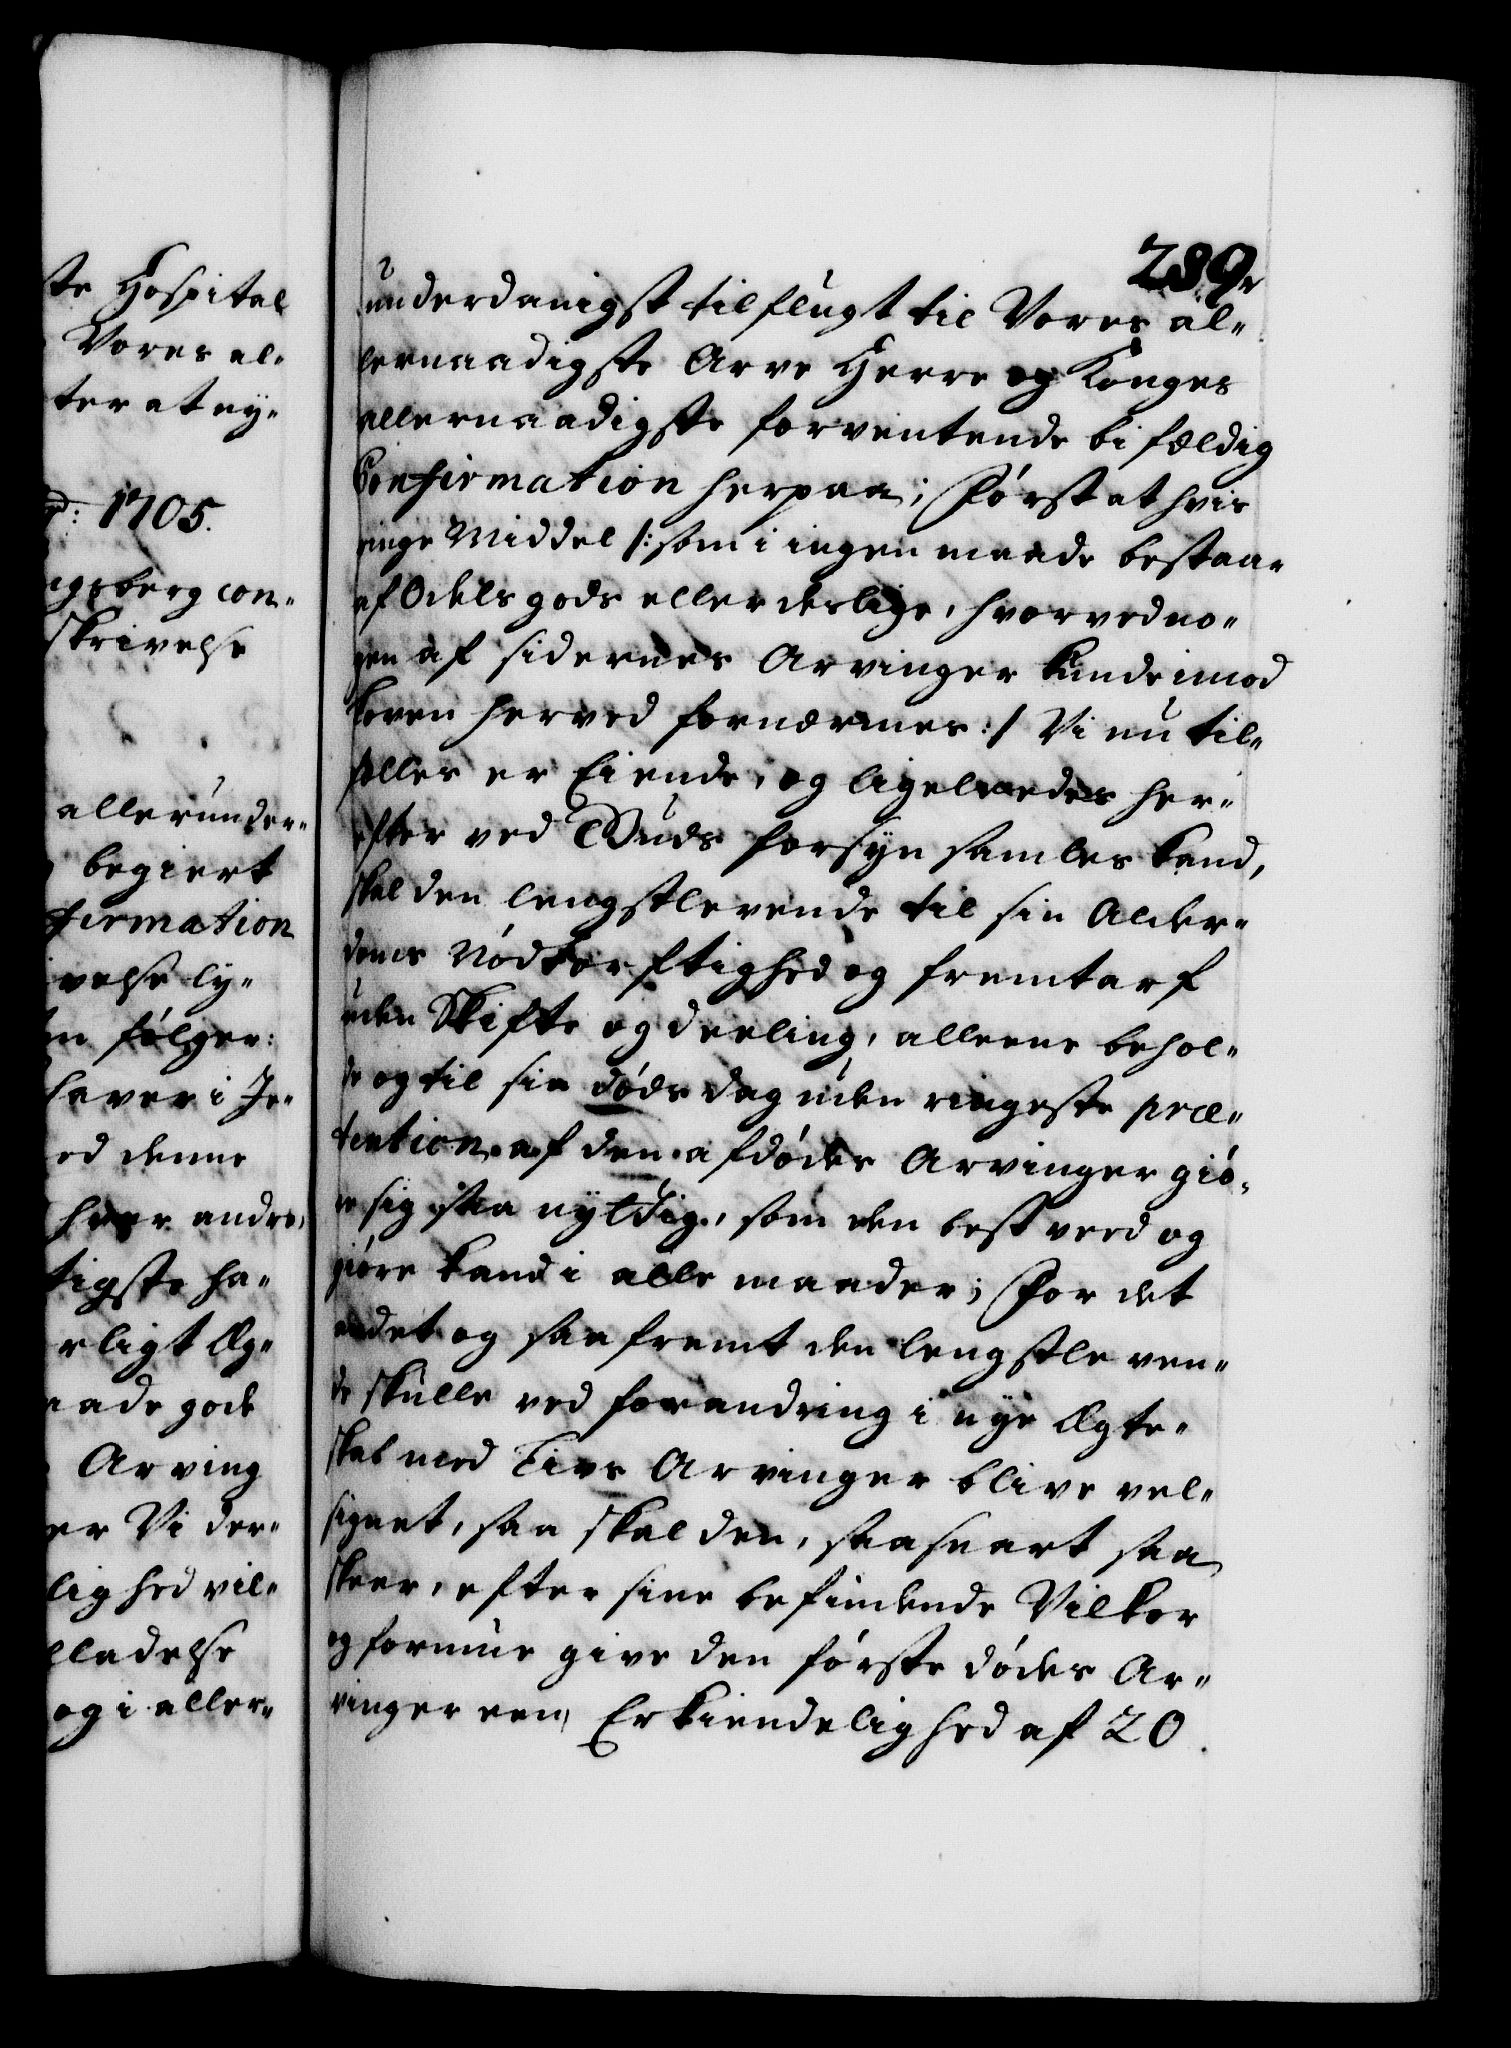 te Hospital
Vores al-
ter at ny-
1705.
ngsberg con-
skrivelse
allerunder-
begiert
firmation
velse ly-
n følger:
haver i Je-
ed denne
hver andre,
tigste ha-
rligt Æg-
aade gode
Arving
er Vi der-
lighed vil-
lladelse
og i aller-
289r
underdanigst tilflugt til Vores al-
lernaadigste Arve Herre og Konges
allernaadigste forventende bifældig
Confirmation herpaa; Først at hvis
ringe Middel /: som i ingen maade bestaar
af Odels gods eller deslige, hvorved no-
gen af sidernes Arvinger kunde imod
loven herved fornærmes :/ Vi nu til-
fælles er Eiende, og ligeledes her-
efter ved Guds forsyn samles kand,
skal den lengstlevende til sin Alder-
doms Nødtørftighed og fremtarf
uden Skifte og deeling, alleene behol-
de og til sin døds dag uden ringeste præ-
tention af den afdødes Arvinger giø-
re sig saa nyttig, som den best veed og
giøre kand i alle maader; For det
andet og saafremt den lengstleven-
de skulle ved forandring i nye Ægte-
skab med Livs Arvinger blive vel-
signet, saa skal den, saasnart saa
skeer, efter sine befindende Vilkor
og formue give den første dødes Ar-
vinger een Erkiendelighed af 20